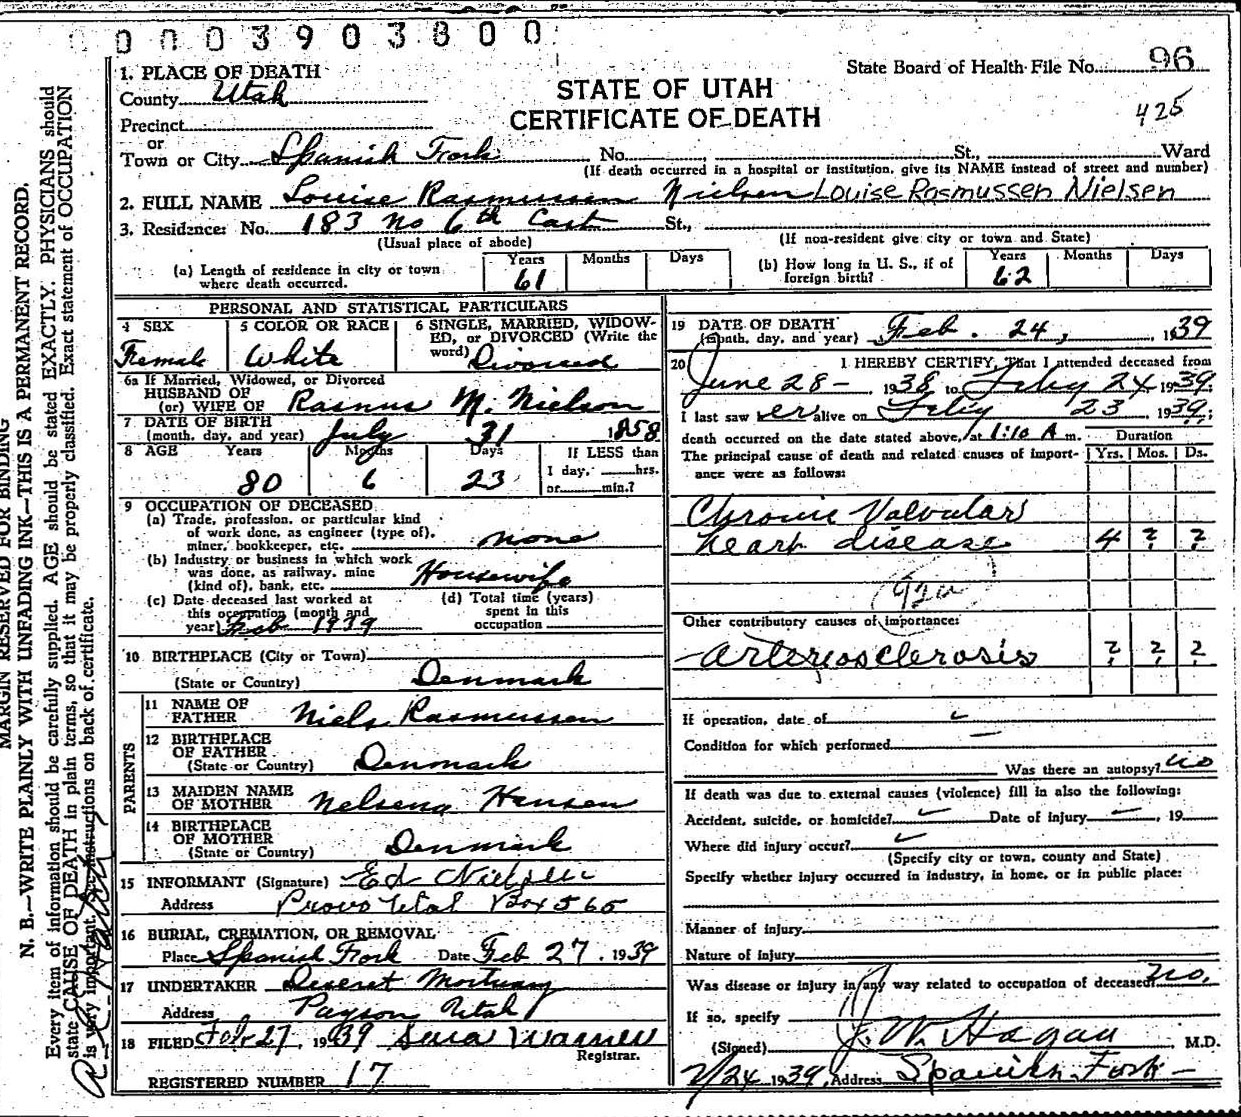 0003903800
State Board of Health File No. 96
425
STATE OF UTAH
CERTIFICATE OF DEATH
1. PLACE OF DEATH
County Utah
Precinct
or
Town or City Spanish Fork No. St., Ward
(If death occurred in a hospital or institution, give its NAME instead of street and number)
2. FULL NAME Louise Rasmussen Nielsen Louise Rasmussen Nielsen
3. Residence: No. 183 No 6th East St.,
(Usual place of abode) (If non-resident give city or town and State)
(a) Length of residence in city or town where death occurred. Years 61 Months Days
(b) How long in U. S., if of foreign birth? Years 62 Months Days
PERSONAL AND STATISTICAL PARTICULARS
4 SEX Female
5 COLOR OR RACE White
6 SINGLE, MARRIED, WIDOW-
ED, or DIVORCED (Write the
word) Divorced
6a If Married, Widowed, or Divorced
HUSBAND OF
(or) WIFE OF Rasmus M. Nielson
7 DATE OF BIRTH
(month, day, and year) July 31 1858
8 AGE Years 80 Months 6 Days 23
IF LESS than
1 day, hrs.
or min.?
9 OCCUPATION OF DECEASED
(a) Trade, profession, or particular kind
of work done, as engineer (type of),
miner, bookkeeper, etc. none
(b) Industry or business in which work
was done, as railway, mine
(kind of), bank, etc. Housewife
(c) Date deceased last worked at
this occupation (month and
year) Feb 1939
(d) Total time (years)
spent in this
occupation
10 BIRTHPLACE (City or Town)
(State or Country) Denmark
PARENTS
11 NAME OF
FATHER Niels Rasmussen
12 BIRTHPLACE
OF FATHER
(State or Country) Denmark
13 MAIDEN NAME
OF MOTHER Nelsena Hansen
14 BIRTHPLACE
OF MOTHER
(State or Country) Denmark
15 INFORMANT (Signature) Ed Nielsen
Address Provo Utah Box 565
16 BURIAL, CREMATION, OR REMOVAL
Place Spanish Fork Date Feb 27, 1939
17 UNDERTAKER Deseret Mortuary
Address Payson Utah
18 FILED Feb 27, 1939 Sara Warner
Registrar.
REGISTERED NUMBER 17
19 DATE OF DEATH
(month, day, and year) Feb. 24, 1939
20 I HEREBY CERTIFY, That I attended deceased from
June 28 - 1938 to Feby 24 1939.
I last saw er alive on Feby 23, 1939;
death occurred on the date stated above, at 1:10 A m.
Duration
The principal cause of death and related causes of import-
ance were as follows: Yrs. Mos. Ds.
Chronic Valvular
heart disease 4 ? ?
92a
Other contributory causes of importance:
Arteriosclerosis ? ? ?
If operation, date of
Condition for which performed
Was there an autopsy? no
If death was due to external causes (violence) fill in also the following:
Accident, suicide, or homicide? Date of injury , 19
Where did injury occur?
(Specify city or town, county and State)
Specify whether injury occurred in industry, in home, or in public place:
Manner of injury
Nature of injury
Was disease or injury in any way related to occupation of deceased? no.
If so, specify
(Signed) J. W. Hagan, M.D.
2/24 1939, Address Spanish Fork -
MARGIN RESERVED FOR BINDING
N. B.—WRITE PLAINLY WITH UNFADING INK—THIS IS A PERMANENT RECORD.
Every item of information should be carefully supplied. AGE should be stated EXACTLY. PHYSICIANS should
state CAUSE OF DEATH in plain terms, so that it may be properly classified. Exact statement of OCCUPATION
is very important. See instructions on back of certificate.